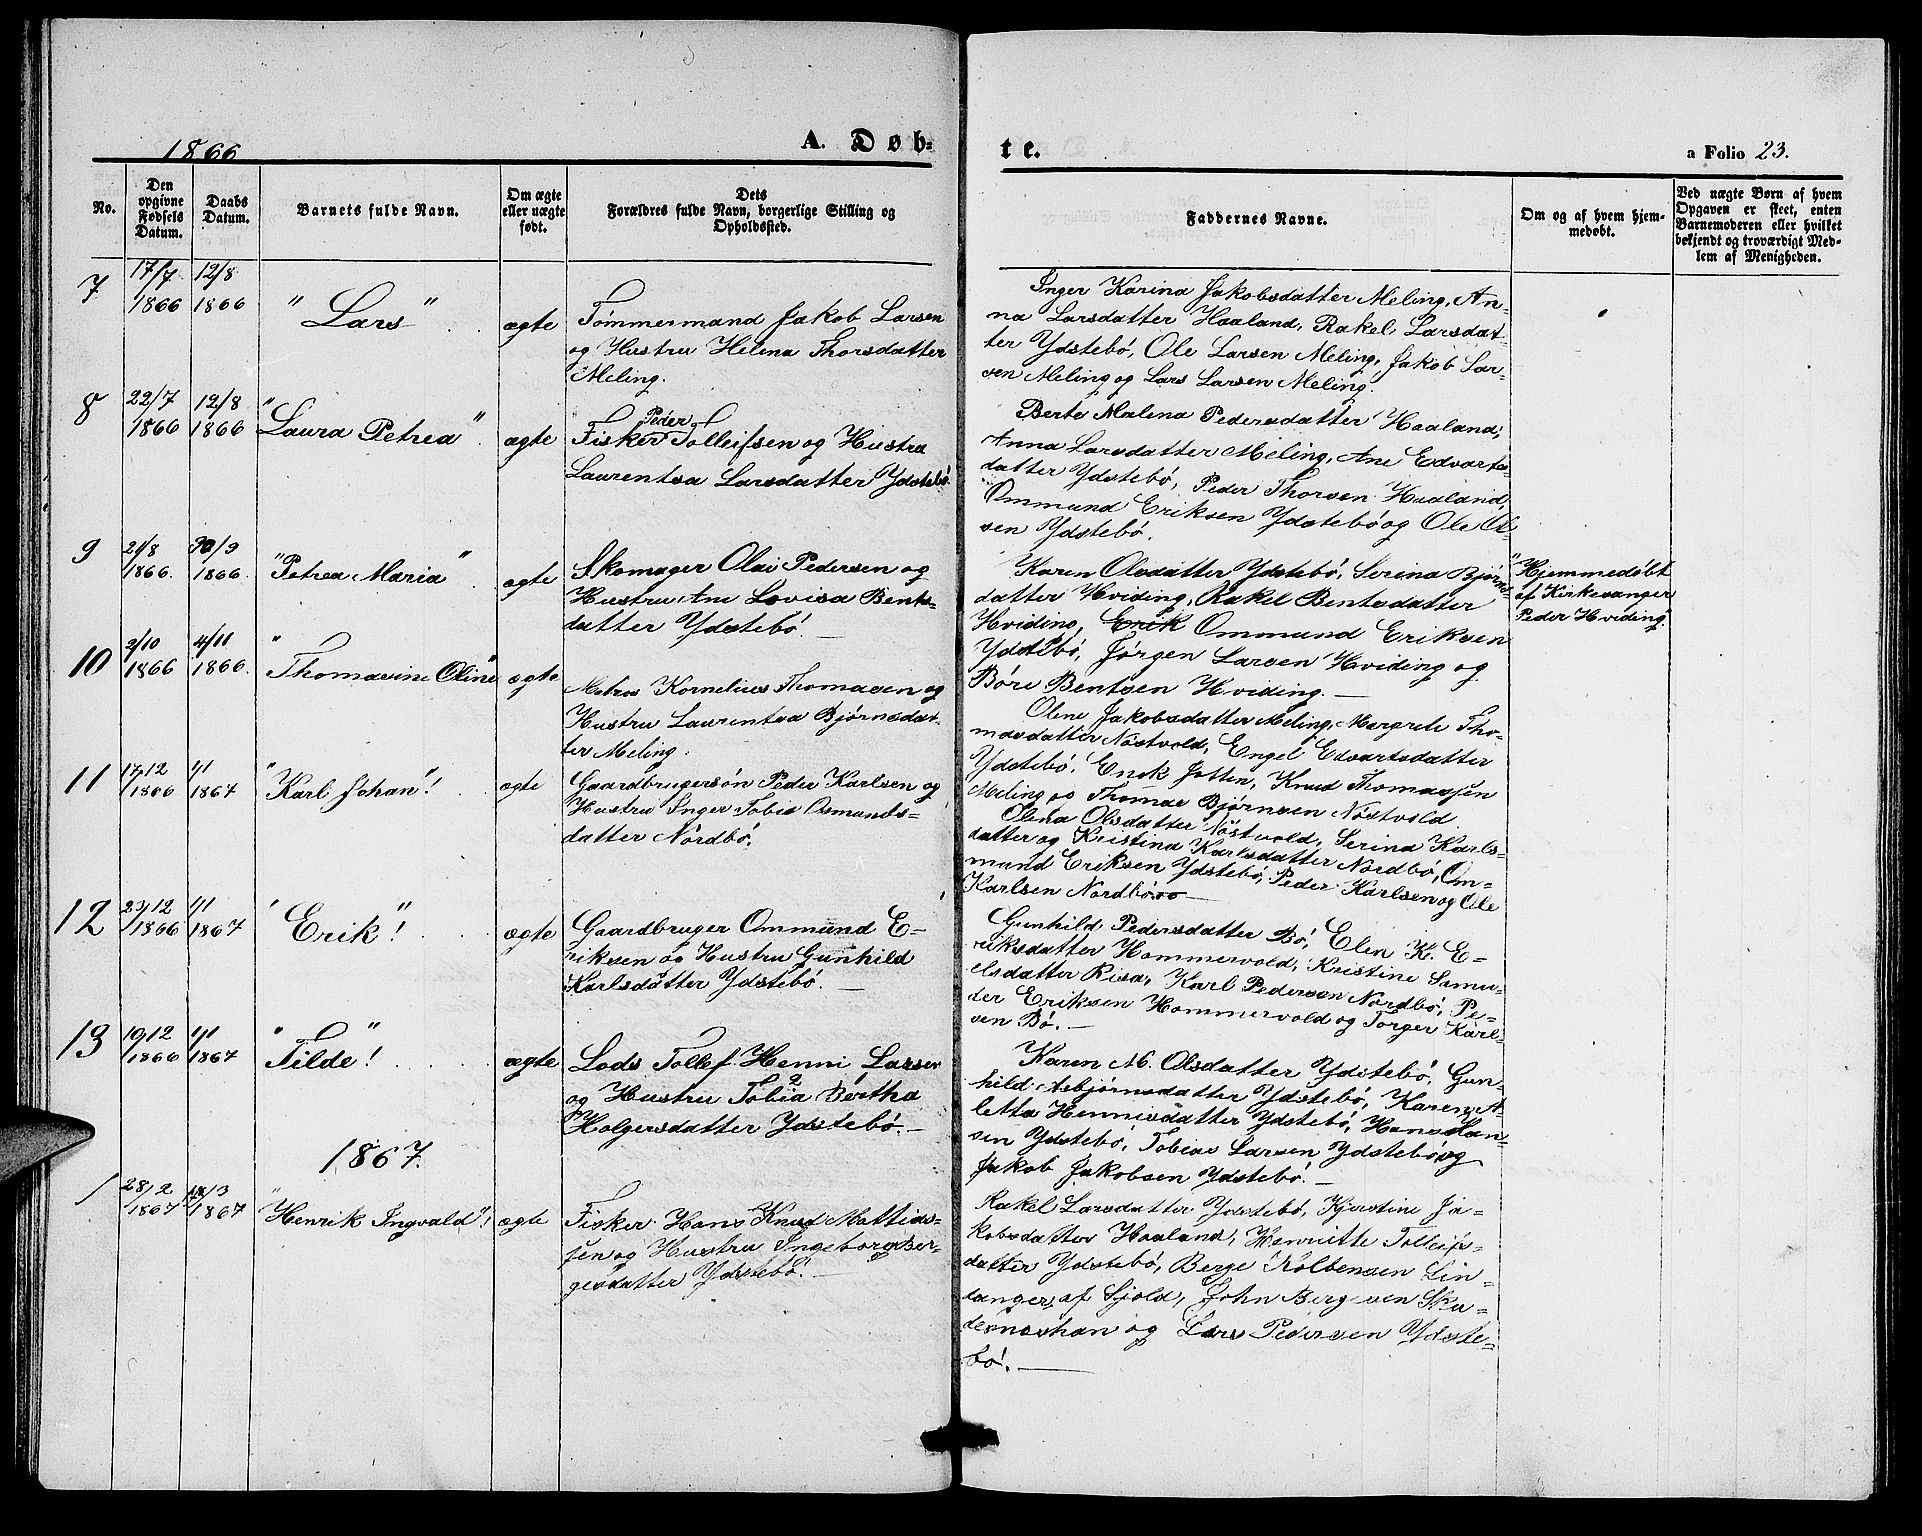 1866
A. Døb=
te.
a Folio 23.
No.
Den opgivne Fødsels Datum.
Daabs Datum.
Barnets fulde Navn.
Om ægte eller uægte født.
Dets Forældres fulde Navn, borgerlige Stilling og Opholdssted.
Faddernes Navne.
Om og af hvem hjemmedøbt.
Ved uægte Børn af hvem Opgaven er skeet, enten Barnemoderen eller hvilket bekjendt og troværdigt Medlem af Menigheden.
7
17/7 1866
12/8 1866
"Lars"
ægte
Tømmermand Jakob Larsen
og Hustru Helena Thorsdatter
Meling.
Inger Karina Jakobsdatter Meling, An-
na Larsdatter Haaland, Rakel Larsdat-
ter Ydstebø, Ole Larsen Meling, Jakob Lar-
sen Meling og Lars Larsen Meling.
8
22/7 1866
12/8 1866
"Laura Petrea"
ægte
Peder
Fisker Tolleifsen og Hustru
Laurentsa Larsdatter Ydstebø
Berte Malena Pedersdatter Haaland,
Anna Larsdatter Meling, Ane Edvarts-
datter Ydstebø, Peder Thorsen Haaland,
Ommund Eriksen Ydstebø og Ole Ol-
sen Ydstebø.
9
21/8 1866.
30/9 1866
"Petrea Maria"
ægte
Skomager Olai Pedersen og
Hustru Ane Lovisa Bents-
datter Ydstebø. —
Karen Olsdatter Ydstebø, Serina Bjørns-
datter Hviding, Rakel Bentsdatter
Hviding, Erik Ommund Eriksen
Ydstebø, Jørgen Larsen Hviding og
Børe Bentsen Hviding. —
"Hjemmedøbt
af Kirkesanger
Peder Hviding"
10
2/10 1866
4/11 1866.
"Thomasine Oline"
ægte
Matros Kornelius Thomasen og
Hustru Laurentsa Bjørnsdat-
ter Meling.
Olene Jakobsdatter Meling, Margrete Tho-
masdatter Nøstvold, Engel Edvartsdatter
Ydstebø, Enok Jotten, Knud Thomassen
Meling og Thomas Bjørnsen Nøstvold
11
17/12 1866
1/1 1867
"Karl Johan"!
ægte
Gaardbrugersøn Peder Karlsen og
Hustru Inger Tobea Osmunds=
datter Nordbø.
Olena Olsdatter Nøstvold, Serina Karls=
datter og Kristina Karlsdatter Nordbø, Om=
mund Eriksen Ydstebø, Peder Karlsen og Ole
Karlsen Nordbø. —
12
23/12 1866
1/1 1867
"Erik"!
ægte
Gaardbruger Ommund E-
riksen og Hustru Gunhild
Karlsdatter Ydstebø. —
Gunhild Pedersdatter Bø, Elen K. E-
riksdatter Hommervold, Kristine Samu-
elsdatter Risa, Karl Pedersen Nordbø, Pe-
der Eriksen Hommervold og Torger Karl-
sen Bø. —
13
19/12 1866
1/1 1867
"Tilde"!
ægte
Lods Tollef Henni Larsen
og Hustru Tobia Bertha
Holgersdatter Ydstebø. —
Karen M. Olsdatter Ydstebø, Gun-
hild Asbjørnsdatter Ydstebø, Karen A-
letta Hennisdatter Ydstebø, Hans Han-
sen Ydstebø, Tobias Larsen Ydstebø og
Jakob Jakobsen Ydstebø. —
1867.
1
28/2 1867
18/3 1867
"Henrik Ingvald"!
ægte
Fisker Hans Knud Mattias-
sen og Hustru Ingeborg Ber-
gesdatter Ydstebø. —
Rakel Larsdatter Ydstebø, Kjerstine Ja-
kobsdatter Haaland, Henriette Tolleifs-
datter Ydstebø, Berge Kolbensen Lin-
danger af Sjold, John Bergesen Sku-
desneshavn og Lars Pedersen Ydste-
bø. —